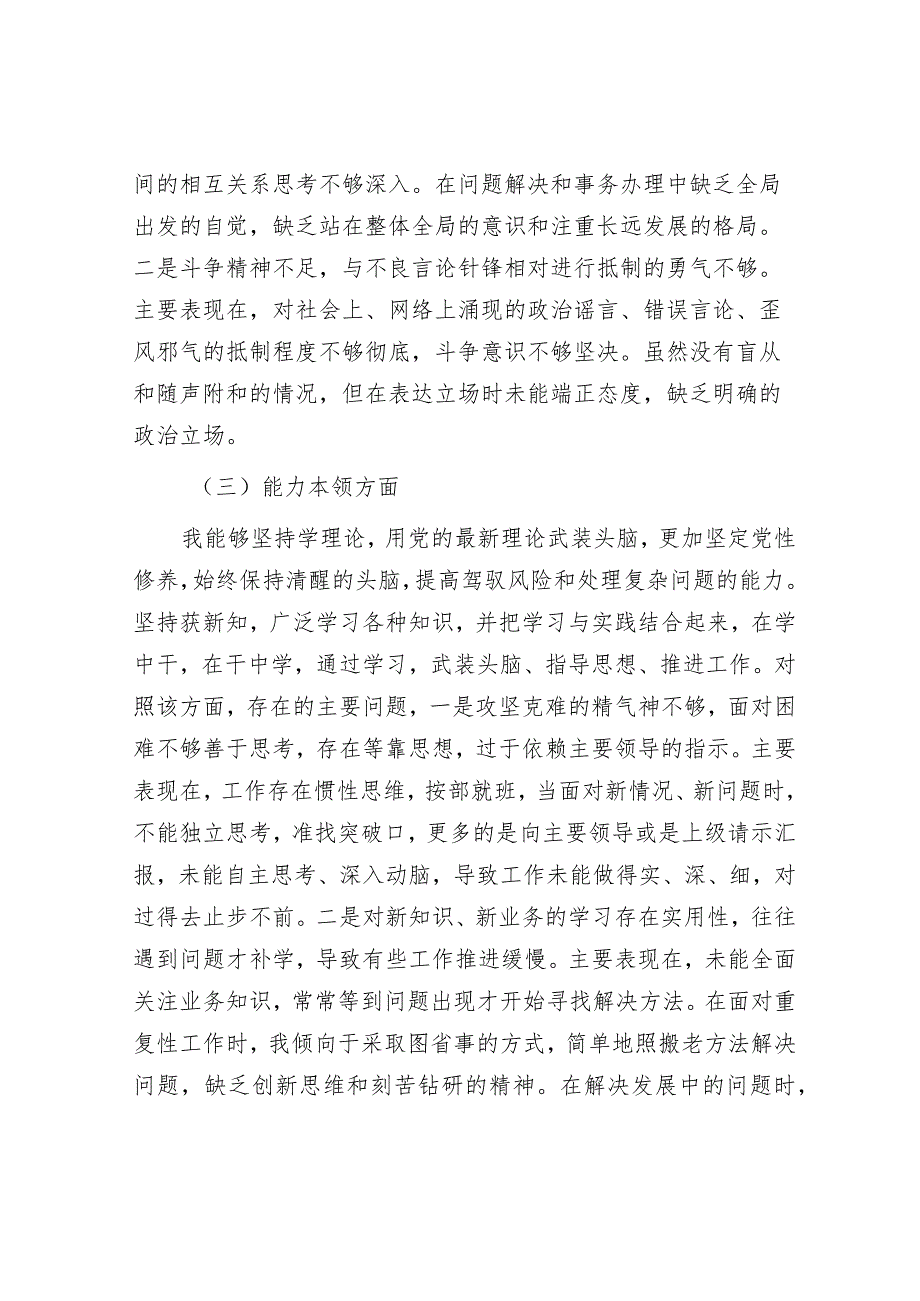 间的相互关系思考不够深入。在问题解决和事务办理中缺乏全局
出发的自觉，缺乏站在整体全局的意识和注重长远发展的格局。
二是斗争精神不足，与不良言论针锋相对进行抵制的勇气不够。
主要表现在，对社会上、网络上涌现的政治谣言、错误言论、歪
风邪气的抵制程度不够彻底，斗争意识不够坚决。虽然没有盲从
和随声附和的情况，但在表达立场时未能端正态度，缺乏明确的
政治立场。
（三）能力本领方面
我能够坚持学理论，用党的最新理论武装头脑，更加坚定党性
修养，始终保持清醒的头脑，提高驾驭风险和处理复杂问题的能力。
坚持获新知，广泛学习各种知识，并把学习与实践结合起来，在学
中干，在干中学，通过学习，武装头脑、指导思想、推进工作。对
照该方面，存在的主要问题，一是攻坚克难的精气神不够，面对困
难不够善于思考，存在等靠思想，过于依赖主要领导的指示。主要
表现在，工作存在惯性思维，按部就班，当面对新情况、新问题时，
不能独立思考，准找突破口，更多的是向主要领导或是上级请示汇
报，未能自主思考、深入动脑，导致工作未能做得实、深、细，对
过得去止步不前。二是对新知识、新业务的学习存在实用性，往往
遇到问题才补学，导致有些工作推进缓慢。主要表现在，未能全面
关注业务知识，常常等到问题出现才开始寻找解决方法。在面对重
复性工作时，我倾向于采取图省事的方式，简单地照搬老方法解决
问题，缺乏创新思维和刻苦钻研的精神。在解决发展中的问题时，